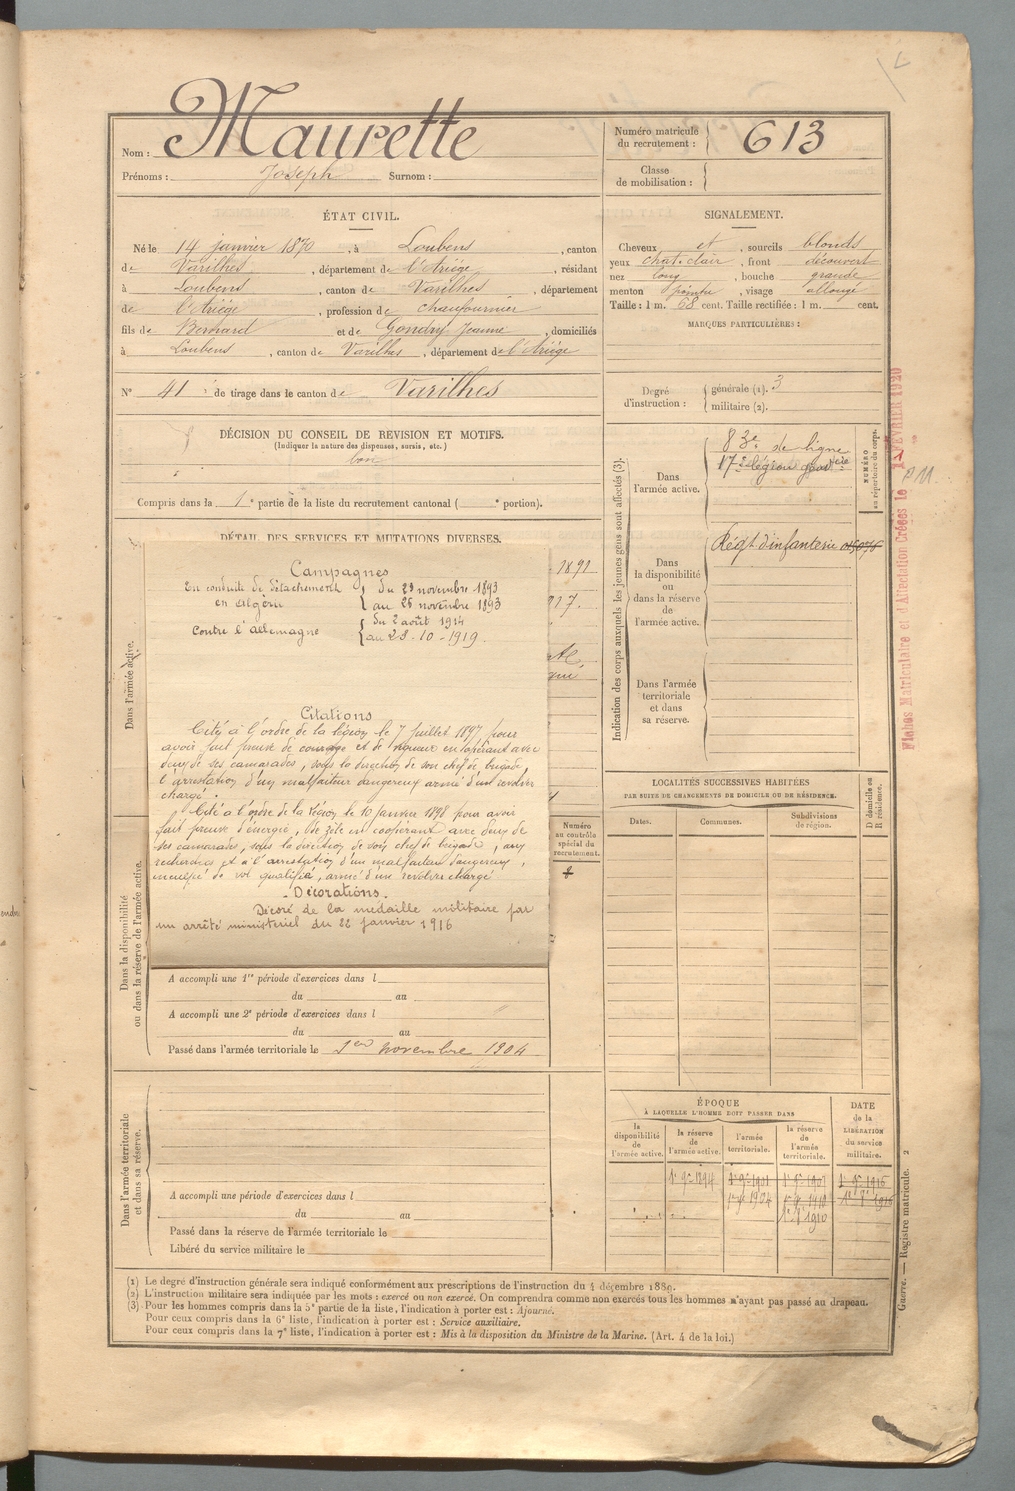 Nom : Maurette
Prénoms : Joseph Surnom :
Numéro matricule du recrutement : 613
Classe de mobilisation :
ÉTAT CIVIL.
Né le 14 janvier 1870, à Loubens, canton
de Varilhes, département de l'Ariège, résidant
à Loubens, canton de Varilhes, département
de l'Ariège, profession de chaufournier
fils de Bernard et de Gondry Jeanne, domiciliés
à Loubens, canton de Varilhes, département de l'Ariège
N° 41 de tirage dans le canton de Varilhes
DÉCISION DU CONSEIL DE REVISION ET MOTIFS.
(Indiquer la nature des dispenses, sursis, etc.)
bon
Compris dans la 1e partie de la liste du recrutement cantonal ( e portion).
SIGNALEMENT.
Cheveux et, sourcils blonds
yeux chat. clair, front découvert
nez long, bouche grande
menton pointu, visage allongé
Taille : 1 m. 68 cent. Taille rectifiée : 1 m. cent.
MARQUES PARTICULIÈRES :
Degré d'instruction : générale (1). 3
militaire (2).
Indication des corps auxquels les jeunes gens sont affectés (3).
NUMÉRO au répertoire du corps.
Dans l'armée active.
83e de ligne
17e légion
Dans la disponibilité ou dans la réserve de l'armée active.
Régt d'infanterie
Dans l'armée territoriale et dans sa réserve.
Fiches Matriculaire et d'Affectation Créées le FÉVRIER 1920
DÉTAIL DES SERVICES ET MUTATIONS DIVERSES.
1891
917.
Dans l'armée active.
Campagnes
En conduite de détachement du 23 novembre 1893
en Algérie au 26 novembre 1893
Contre l'allemagne du 2 août 1914
au 28-10-1919.
Citations
Cité à l'ordre de la légion le 7 juillet 1897 pour
avoir fait preuve de courage et de vigueur en opérant avec
deux de ses camarades, sous la direction de son chef de brigade,
l'arrestation d'un malfaiteur dangereux armé d'un revolver
chargé.
Cité à l'ordre de la légion le 10 janvier 1898 pour avoir
fait preuve d'énergie, de zèle en coopérant avec deux de
ses camarades, sous la direction de son chef de brigade, aux
recherches et à l'arrestation d'un malfaiteur dangereux,
inculpé de vol qualifié, armé d'un revolver chargé
Décorations.
Décoré de la médaille militaire par
un arrêté ministériel du 22 janvier 1916
Numéro au contrôle spécial du recrutement.
Dans la disponibilité ou dans la réserve de l'armée active.
A accompli une 1re période d'exercices dans l
du au
A accompli une 2e période d'exercices dans l
du au
Passé dans l'armée territoriale le 1er novembre 1904
Dans l'armée territoriale et dans sa réserve.
A accompli une période d'exercices dans l
du au
Passé dans la réserve de l'armée territoriale le
Libéré du service militaire le
LOCALITÉS SUCCESSIVES HABITÉES
PAR SUITE DE CHANGEMENTS DE DOMICILE OU DE RÉSIDENCE.
Dates. Communes. Subdivisions de région. D domicile ou R résidence.
ÉPOQUE
À LAQUELLE L'HOMME DOIT PASSER DANS
la disponibilité de l'armée active. la réserve de l'armée active. l'armée territoriale. la réserve de l'armée territoriale.
DATE de la LIBÉRATION du service militaire.
(1) Le degré d'instruction générale sera indiqué conformément aux prescriptions de l'instruction du 4 décembre 1889.
(2) L'instruction militaire sera indiquée par les mots : exercé ou non exercé. On comprendra comme non exercés tous les hommes n'ayant pas passé au drapeau.
(3) Pour les hommes compris dans la 5e partie de la liste, l'indication à porter est : Ajourné.
Pour ceux compris dans la 6e liste, l'indication à porter est : Service auxiliaire.
Pour ceux compris dans la 7e liste, l'indication à porter est : Mis à la disposition du Ministre de la Marine. (Art. 4 de la loi.)
Guerre. — Registre matricule. 2